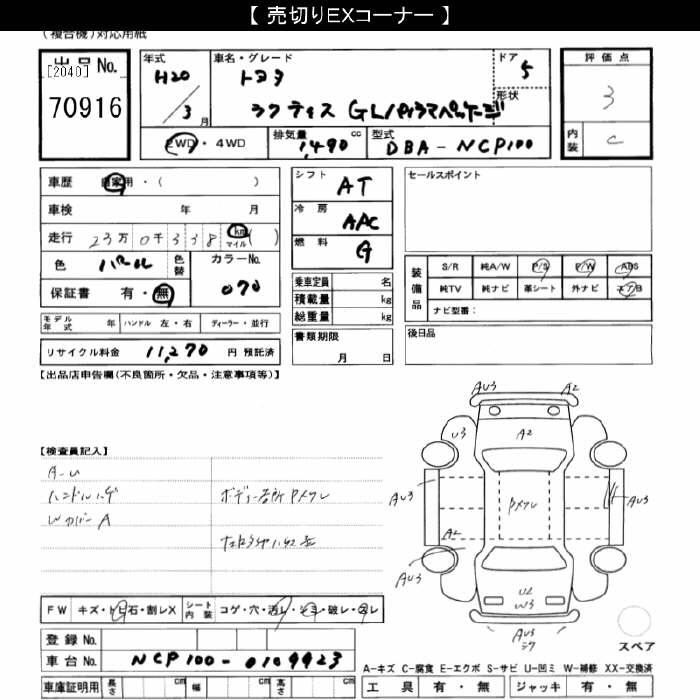 【 売切りEXコーナー 】
(複合機)対応用紙
出品No.
[2040]
70916
年式
H20
/
3月
車名・グレード
トヨタ
ラクティス GLパノラマパッケージ
ドア
5
形状
2WD・4WD
排気量 cc
1,490
型式
DBA-NCP100
評価点
3
内装
C
車歴 自家用・( )
車検 年 月
走行 23万0千338 km マイル( )
色 パール
色替
カラーNo.
070
保証書 有・無
モデル年式 年
ハンドル 左・右
ディーラー・並行
リサイクル料金 11,270 円 預託済
シフト
AT
冷房
AAC
燃料
G
乗車定員 名
積載量 kg
総重量 kg
書類期限
月 日
セールスポイント
装備品
S/R 純A/W P/S P/W ABS
純TV 純ナビ 革シート 外ナビ エアB
ナビ型番:
後日品
【出品店申告欄(不良箇所・欠品・注意事項等)】
【検査員記入】
A-U
ハンドルハゲ
WカバーA
ボディー各所Pメクレ
FW キズ・トビ石・割レX
シート内装 コゲ・穴・汚レ・シミ・破レ・スレ
登録No.
車台No. NCP100-0109923
車庫証明用 長さ cm 幅 cm 高さ cm
AU3
A2
U3
A2
AU3
Pメクレ
AU3
A2
AU3
U2
W3
AU3
スペア
A-キズ C-腐食 E-エクボ S-サビ U-凹ミ W-補修 XX-交換済
工具 有・無 ジャッキ 有・無